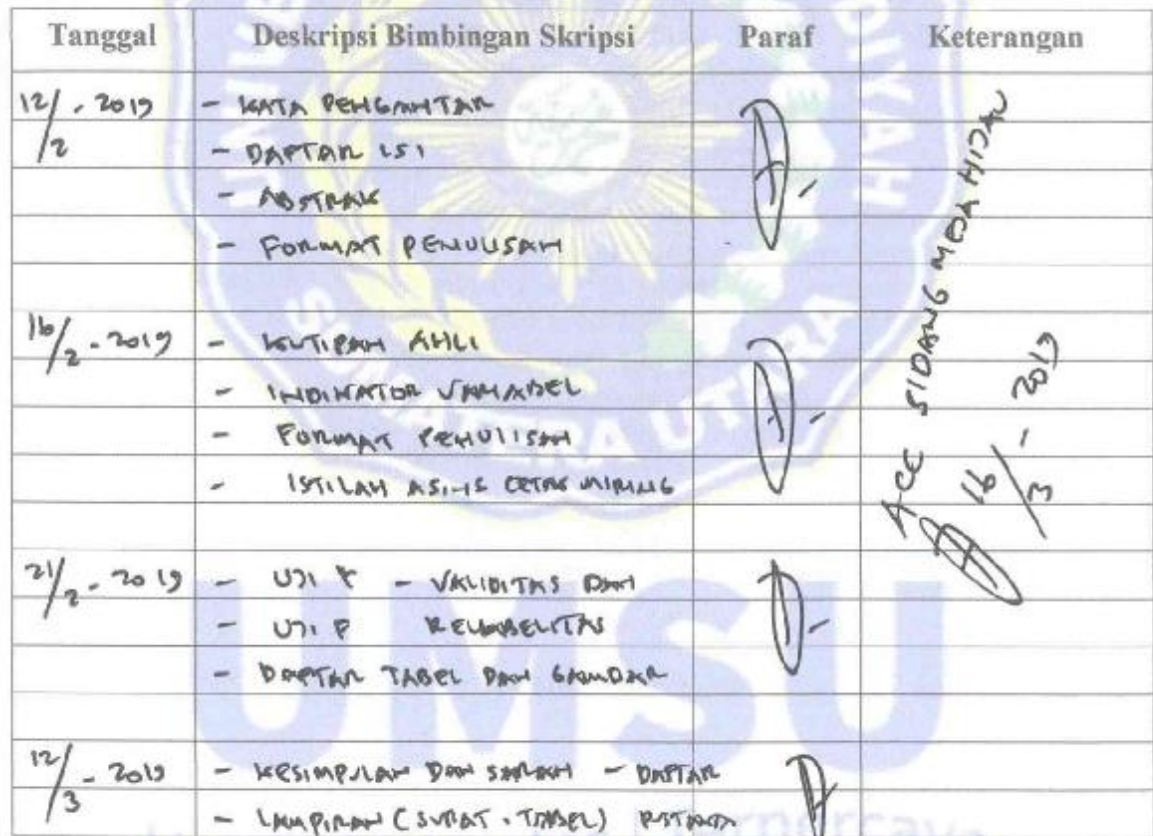 Tanggal Deskripsi Bimbingan Skripsi Paraf Keterangan
12/2 - 2019 - KATA PENGANTAR
- DAFTAR ISI
- ABSTRAK
- FORMAT PENULISAN
16/2 - 2019 - KUTIPAN AHLI
- INDIKATOR VARIABEL
- FORMAT PENULISAN
- ISTILAH ASING CETAK MIRING
21/2 - 2019 - UJI - VALIDITAS DAN
- UJI RELIABELITAS
- DAFTAR TABEL DAN GAMBAR
12/3 - 2019 - KESIMPULAN DAN SARAN - DAFTAR
- LAMPIRAN (SURAT - TABEL) PUSTAKA
ACC SIDANG MEJA HIJAU
16/3 - 2019
SUMATERA UTARA
UMSU